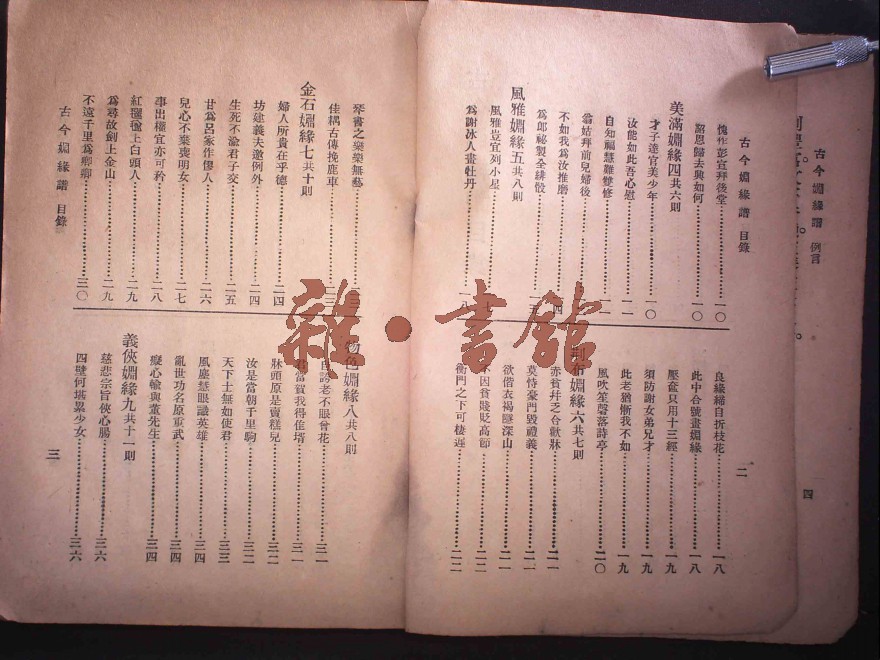 古今姻緣譜 例言
四
古今姻緣譜 目錄
二
愧作彭宣拜後堂……一〇
詔恩歸去興如何……一〇
美滿姻緣四共六則
才子達官美少年……一〇
汝能如此吾心慰……一一
自知福慧難雙修
翁姑拜前兒婦後
不如我為汝推磨
為郎祕製全緋骰
風雅姻緣五共八則
風雅豈宜列小星
為謝冰人畫牡丹
良緣締自折枝花……一八
此中合號畫姻緣……一八
壓奩只用十三經……一九
須防謝女弟兄才……一九
此老猶慚我不如……一九
風吹笙磬落詩亭……二〇
荆布姻緣六共七則
赤貧幷乏合歡牀……二一
莫恃豪門毀禮義……二一
欲偕衣褐隱深山……二一
不因貧賤貶高節……二二
衡門之下可棲遲……二二
琴書之樂樂無藝
佳耦古傳挽鹿車
金石姻緣七共十則
婦人所貴在乎德……二四
坊建義夫邀例外……二四
生死不渝君子交……二五
甘為呂家作傻人……二六
兒心不棄喪明女……二七
事出權宜亦可矜……二八
紅氍毹上白頭人……二九
為尋故劍上金山……二九
不遠千里為卿卿……三〇
古今姻緣譜 目錄
三
物色姻緣八共八則
自誇老不眼曾花……三一
君當賀我得佳壻……三一
牀頭原是賣糕兒……三二
汝是當朝千里駒……三二
天下士無如使君……三三
風塵慧眼識英雄……三四
亂世功名原重武……三四
癡心輸與董先生……三四
義俠姻緣九共十一則
慈悲宗旨俠心腸……三六
四壁何堪累少女……三六
雜·書館